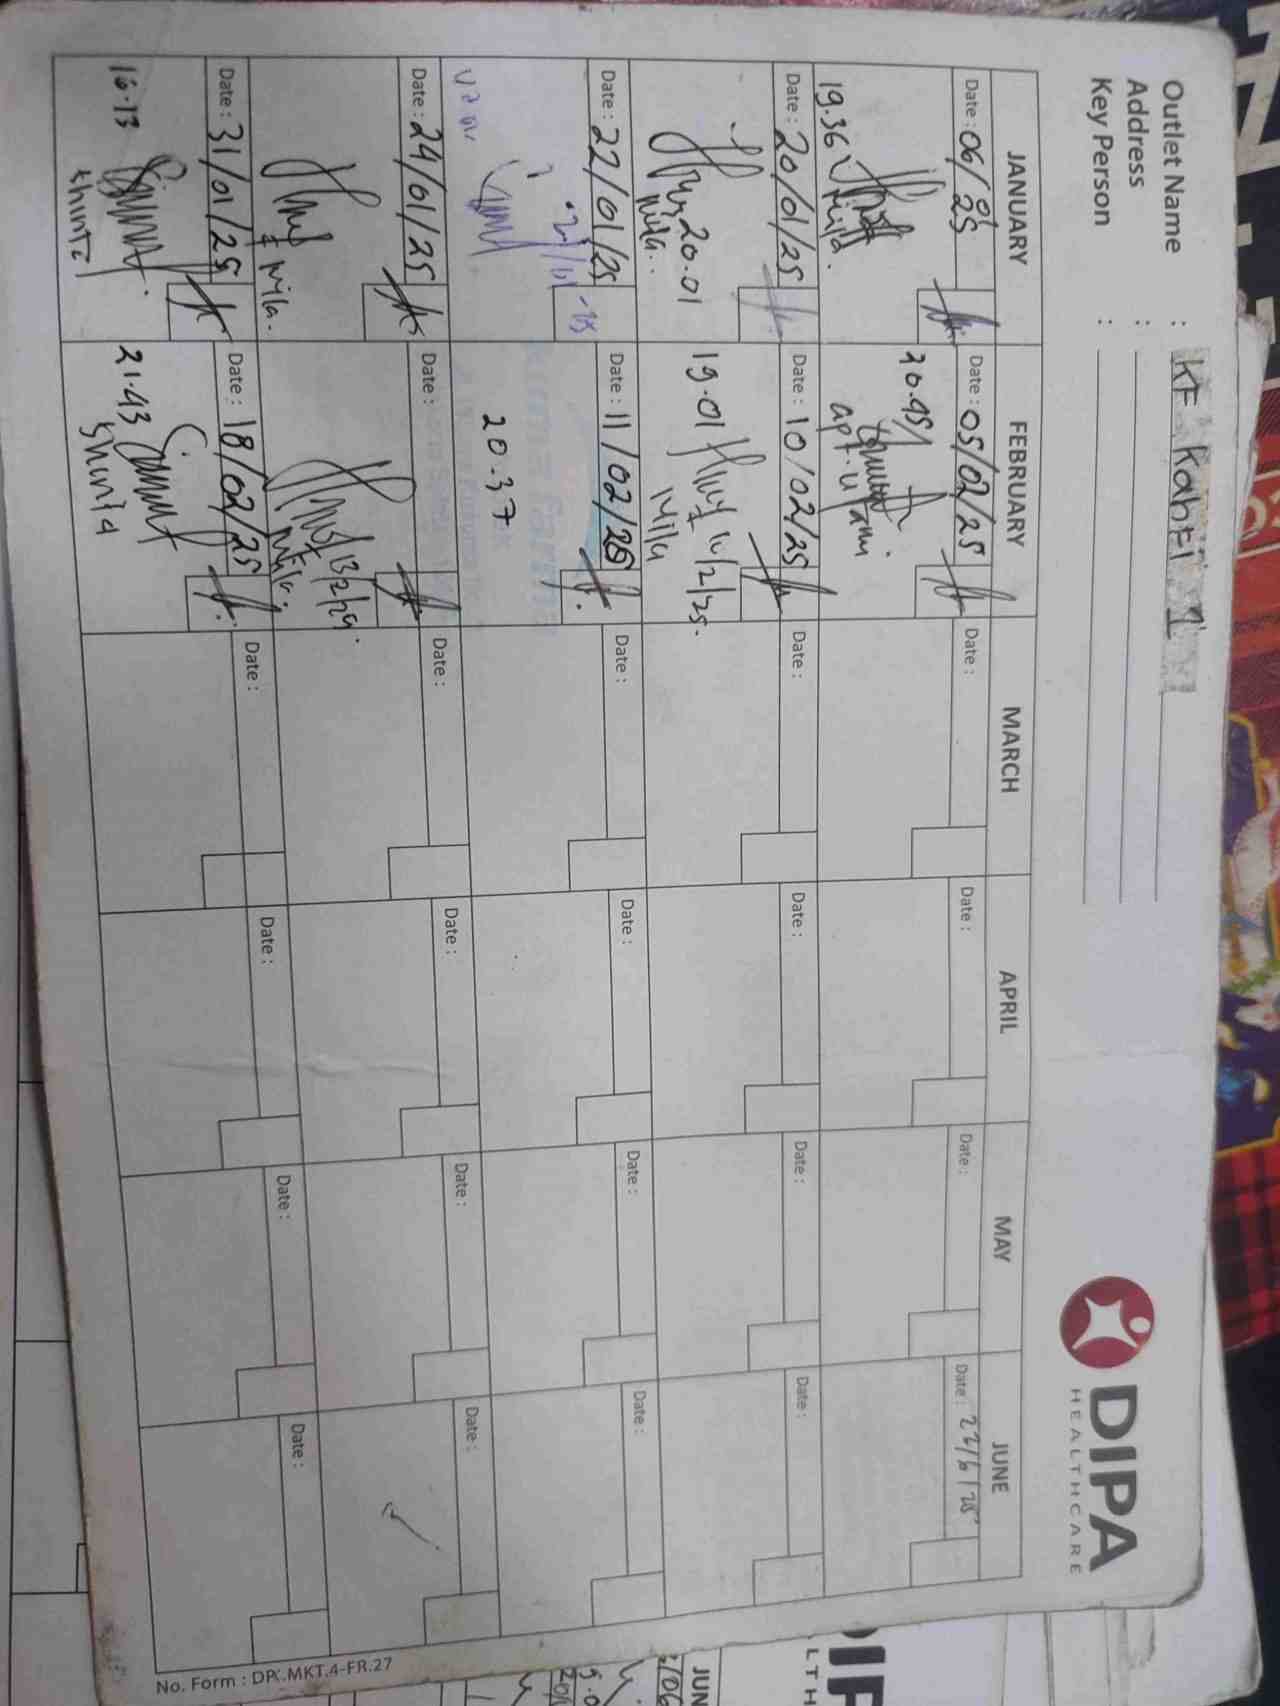 Outlet Name : KF Kahfi 1
Address :
Key Person :
DIPA
HEALTHCARE
JANUARY
FEBRUARY
MARCH
APRIL
MAY
JUNE
Date : 06/01/25
19.36
Date : 05/02/25
20.45
Date :
Date :
Date :
Date : 23/6/25
Date : 20/01/25
20.01
Mila.
Date : 10/02/25
19.01
10/2/25.
Mila
Date :
Date :
Date :
Date :
Date : 22/01/25
Date : 11/02/25
20.37
Date :
Date :
Date :
Date :
Date : 24/01/25
Mila.
Date :
13/2/25.
Mila.
Date :
Date :
Date :
Date :
Date : 31/01/25
16.13
Shinta
Date : 18/02/25
21.43
Shinta
Date :
Date :
Date :
Date :
No. Form : DPK.MKT.4-FR.27
JUN